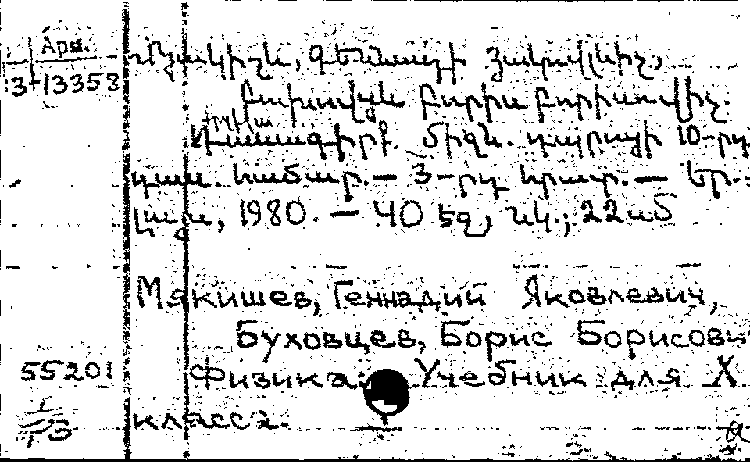 Арм.
З-13358
Մյակիշև, Գեննադի Յակովլևիչ,
Բուխովցև Բորիս Բորիսովիչ.
Ֆիզիկա
Դասագիրք. Միջն. դպրոցի 10-րդ
դաս. համար. — 3-րդ հրատ. — Եր.:
Լույս, 1980. — 40 էջ, նկ.; 22 սմ
Мякишев, Геннадий Яковлевич,
Буховцев, Борис Борисови
Физика: Учебник для X
класса.
55201